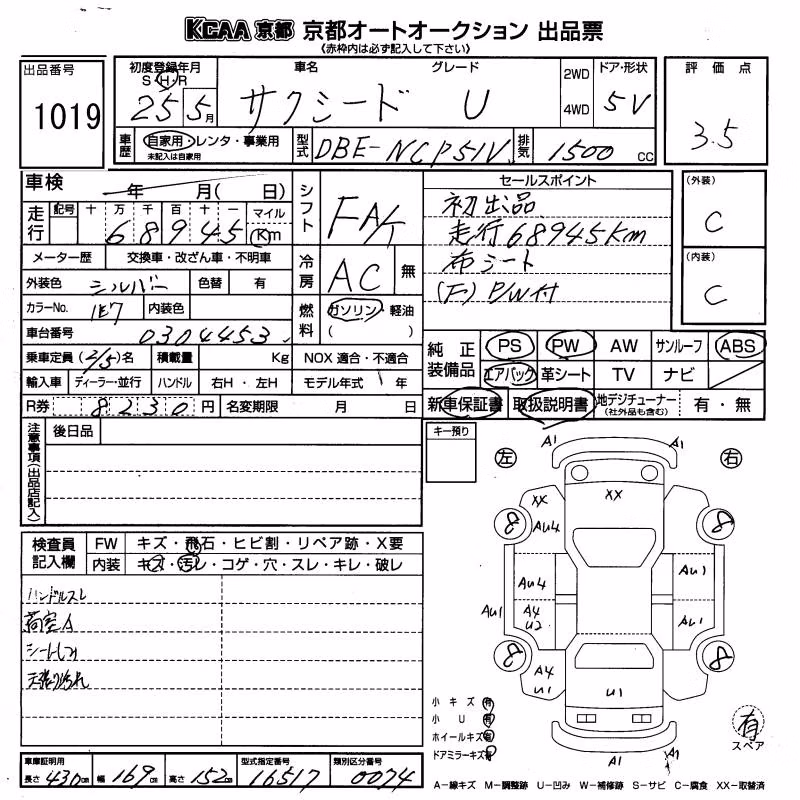 KCAA 京都 京都オートオークション 出品票
《赤枠内は必ず記入して下さい》
出品番号
1019
初度登録年月
S・H・R
25 5月
車名 グレード
サクシード U
2WD
4WD
ドア・形状
5V
評価点
3.5
車歴
自家用・レンタ・事業用
未記入は自家用
型式
DBE-NCP51V
排気
1500 cc
車検
年 月( 日)
走行
記号 十 万 千 百 十 一 マイル
6 8 9 4 5 Km
メーター歴 交換車・改ざん車・不明車
外装色 シルバー 色替 有
カラーNo. 1E7 内装色
車台番号 0304453
乗車定員 (2/5)名 積載量 Kg NOX 適合・不適合
輸入車 ディーラー・並行 ハンドル 右H・左H モデル年式 年
R券 8230円 名変期限 月 日
シフト
FA/T
冷房
AC 無
燃料
ガソリン・軽油
( )
セールスポイント
初出品
走行68945Km
布シート
(F) P/W付
(外装)
C
(内装)
C
純正装備品
PS PW AW サンルーフ ABS
エアバック 革シート TV ナビ
新車保証書 取扱説明書 地デジチューナー 有・無
(社外品も含む)
注意事項(出品店記入)
後日品
キー預り
検査員記入欄
FW キズ・飛石・ヒビ割・リペア跡・X要
内装 キズ・汚レ・コゲ・穴・スレ・キレ・破レ
ハンドルスレ
荷室A
シートしみ
天張り汚れ
左 右
A1 A1
XX XX
8 8
AU4
AU4 AU1
AU1 A4 U2 AU1
8 8
A4
U1 U1
A1 A1
小キズ 有
小U 有
ホイールキズ 有
ドアミラーキズ 有
有
スペア
車庫証明用
長さ 430cm 幅 169cm 高さ 152cm
型式指定番号
16517
類別区分番号
0074
A―線キズ M―調整跡 U―凹み W―補修跡 S―サビ C―腐食 XX―取替済